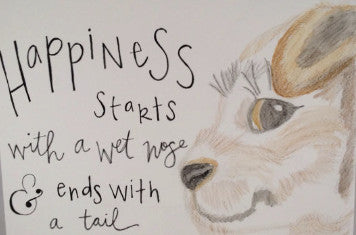 HAppiNESS
starts
with a wet nose
& ends with
a tail